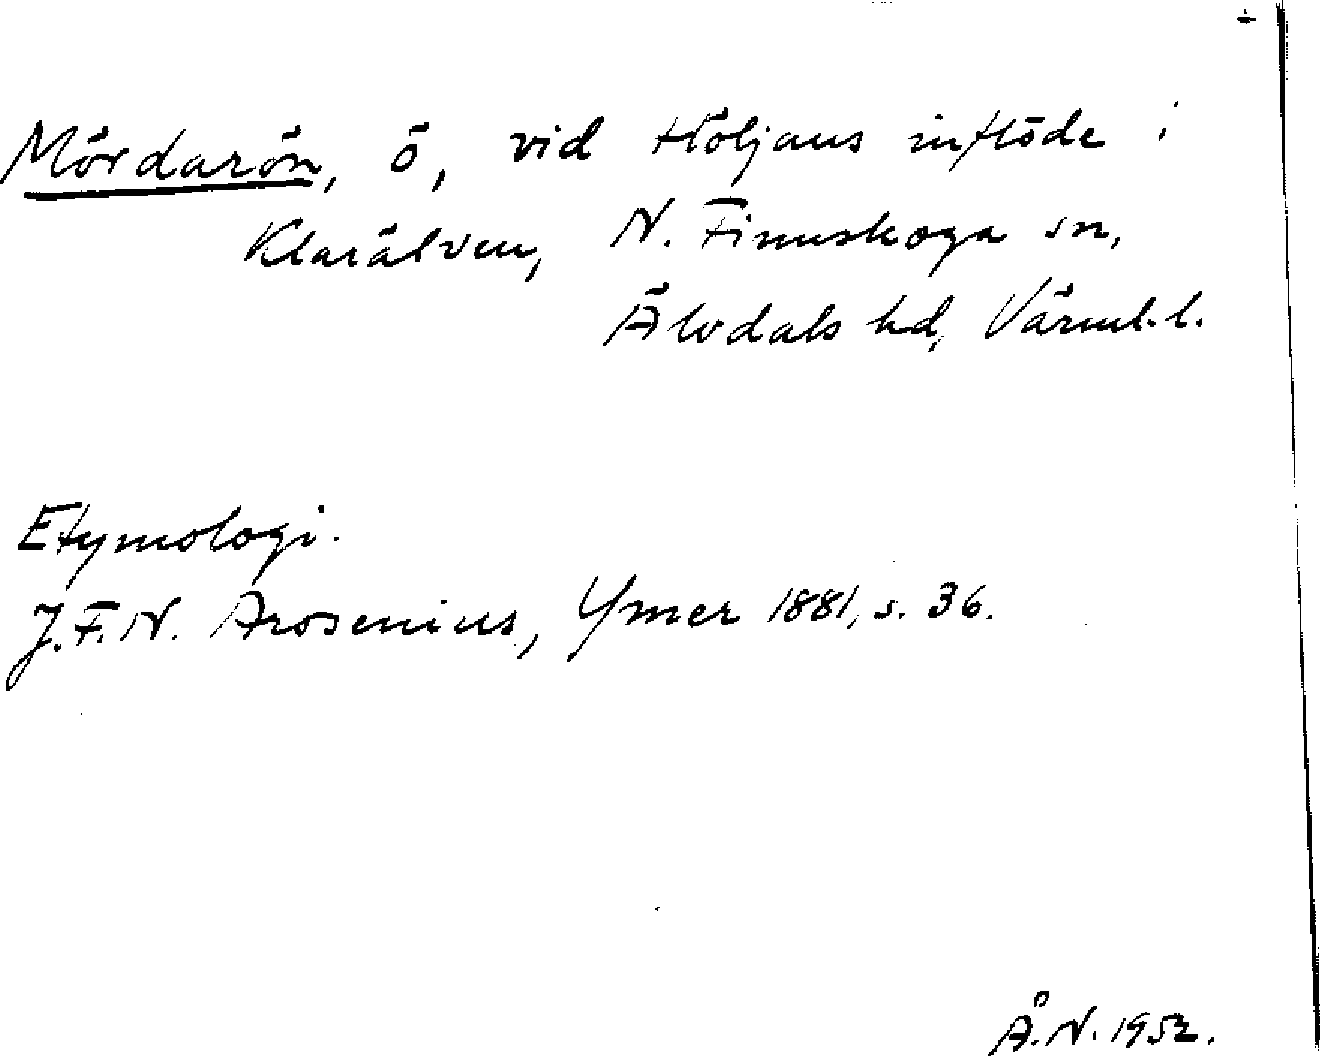 Mördarön, ö, vid Höljans inflöde i
Klarälven, N. Finnskoga sn,
Älvdals hd, Värml. l.
Etymologi.
J. F. N. Arosenius, Ymer 1881, s. 36.
Å. N. 1952.